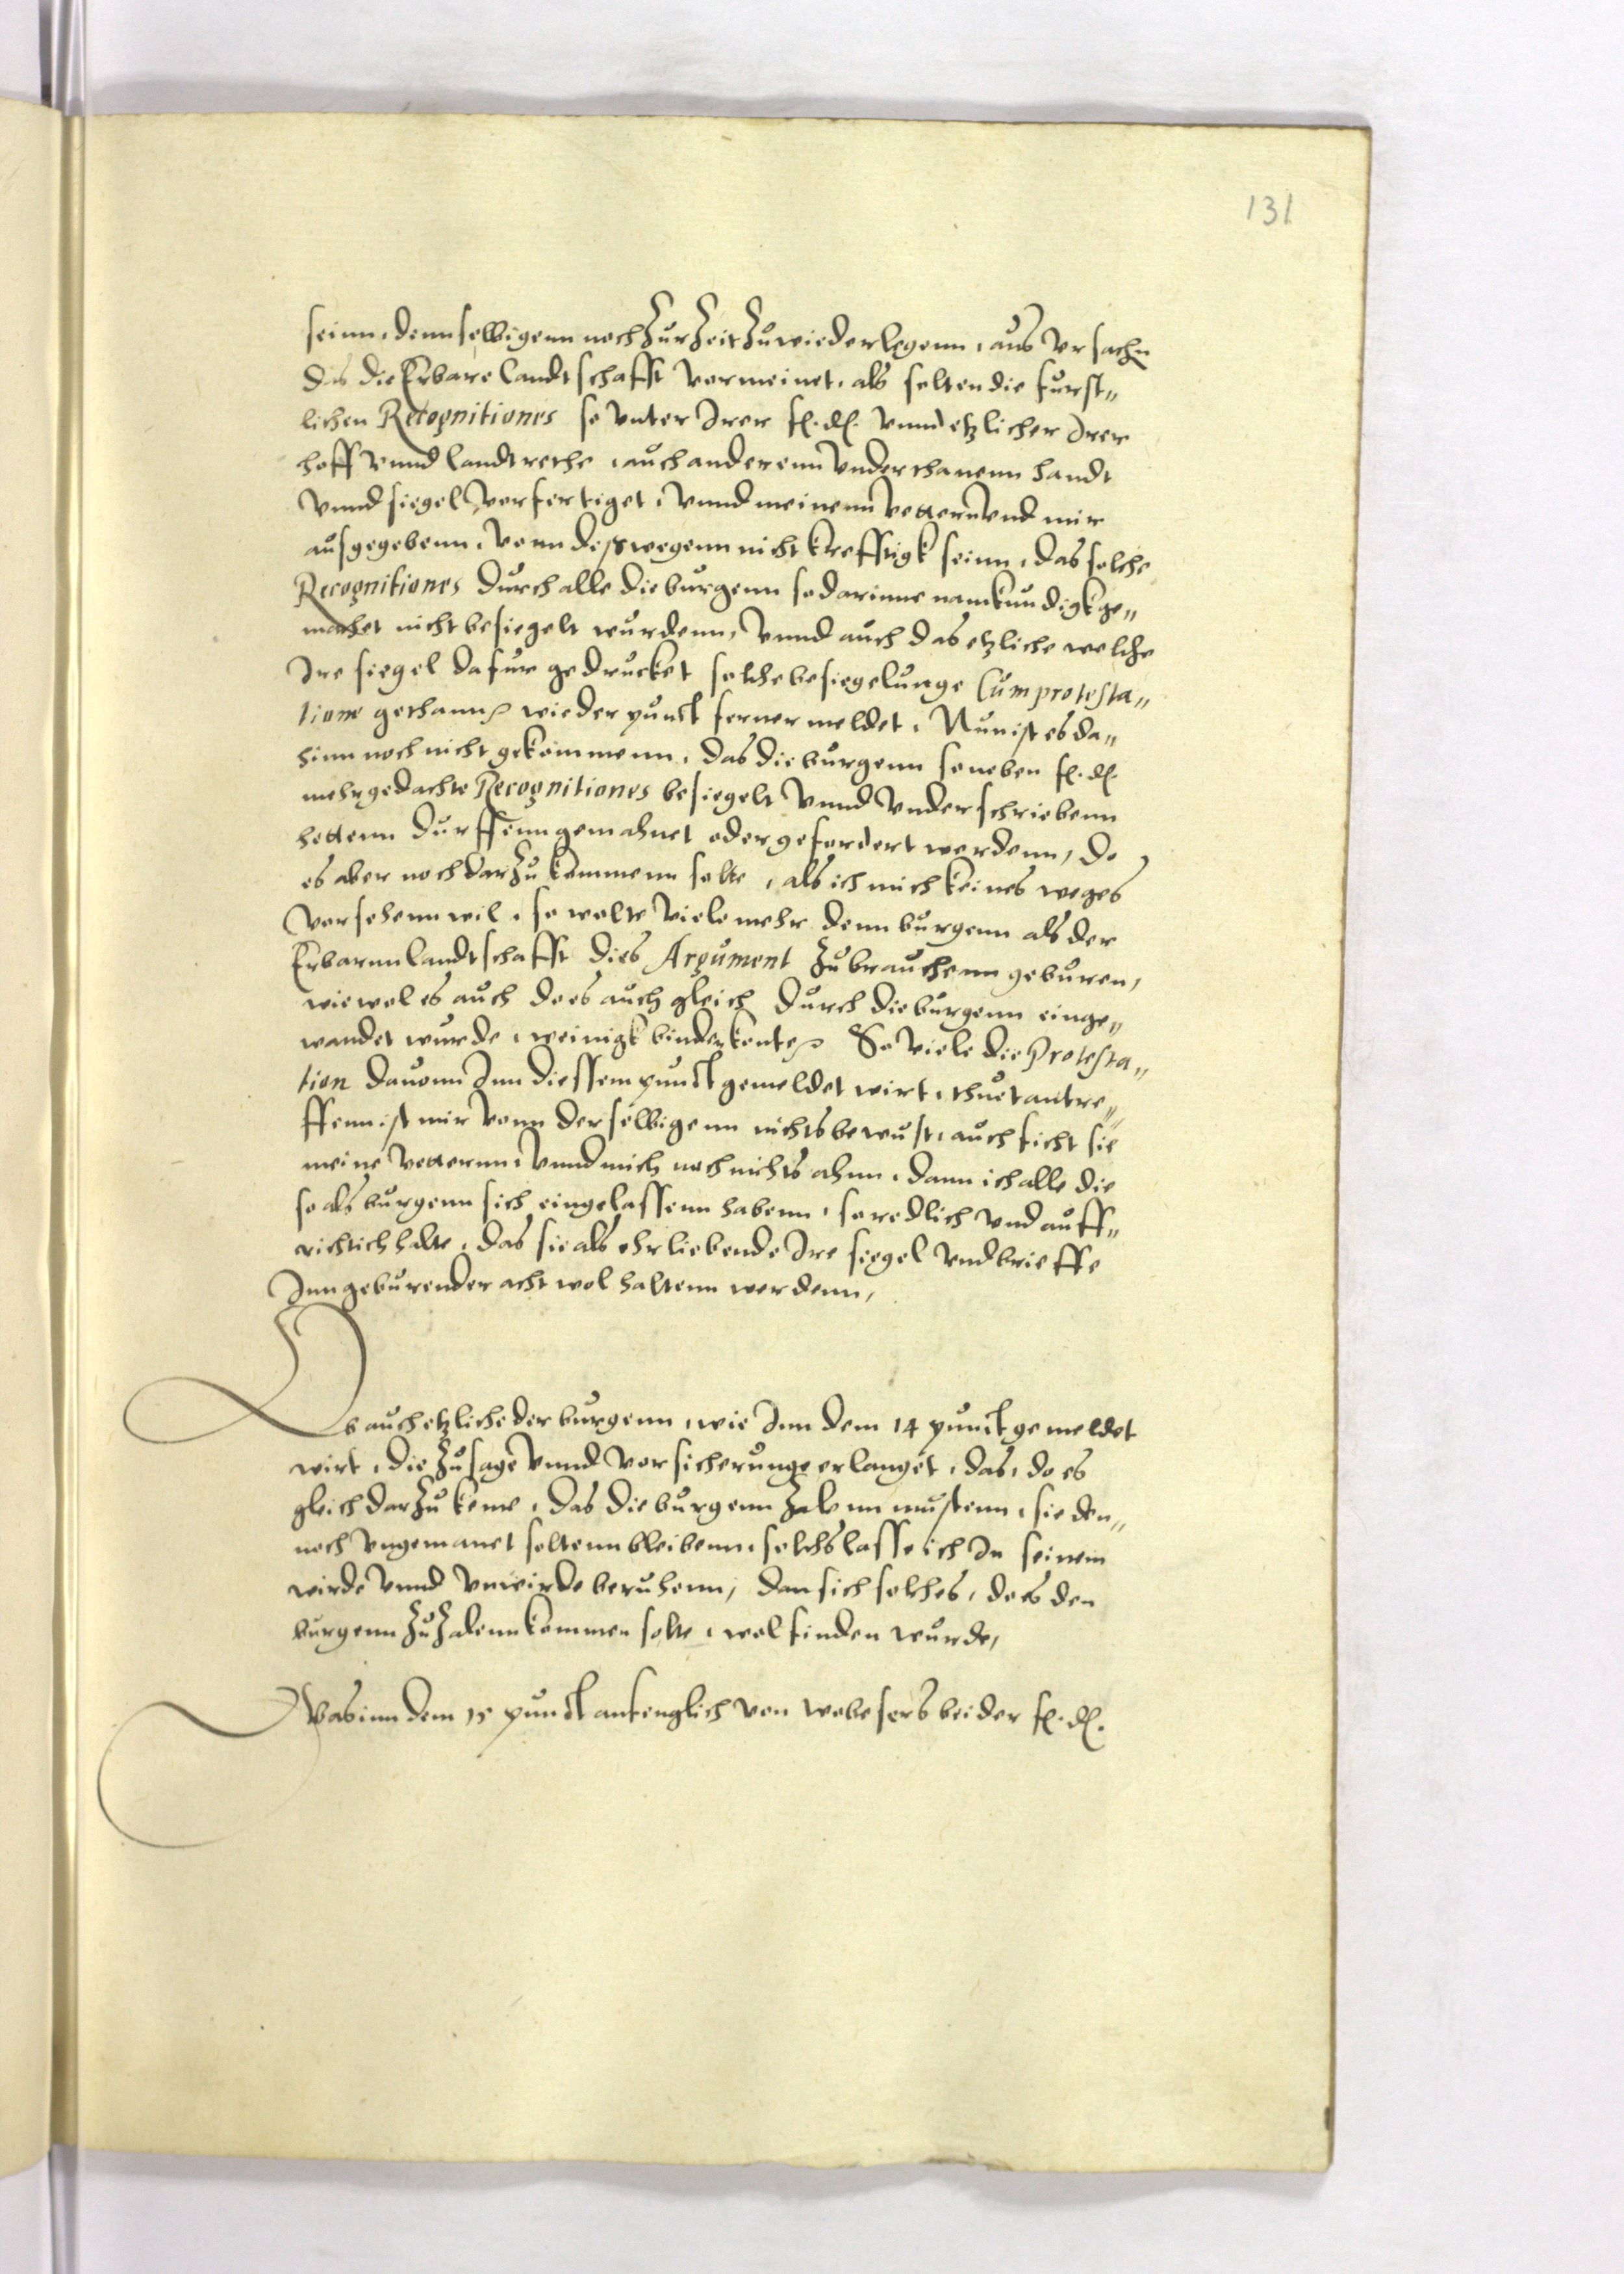 131
seinn, dennselbigenn noch Zur Zeit Zuwiederlegenn, aus Vrsachn
Das die Erbare Landtschafft vermeinet, als solten die furst„
lichen Recognitiones so vnter Irer f. d. vnnd etzlicher Irer
hoff vnnd landtrethe, auch anderenn Vnderthanenn handt
Vnnd siegel verfertiget, Vnnd meinenn Vetternn Vnd mir
ausgegebenn, Vonn desswegenn nicht krefftigk seinn, das solche
Recognitiones durch alle die burgenn so darinne namkundigk ge„
machet nicht besiegelt wurdenn, Vnnd auch das etzliche welche
Ire siegel dafur gedrucket solche besiegelunge Cum protesta„
tione gethann wie der punct ferner meldet, Nun ist es da„
hinn noch nicht gekommenn, das die burgenn so neben f. d.
mehrgedachte Recognitiones besiegelt Vnnd Vnderschriebenn
hettenn durffenn gemahnet oder gefordert werdenn, Do
es aber noch darzu kommenn solte, als ich mich keines weges
Versehenn wil, so wolte viele mehr denn burgenn als der
Erbarnn landtschafft dies Argument Zubrauchenn geburen,
wiewol es auch do es auch gleich durch die burgenn einge„
wandet wurde, weinigk bindenn konte So viele die Protesta„
tion dauonn Inn diessem punct gemeldet wirt, thuet antre„
ffenn ist mir vonn derselbigenn nichts bewust, auch ficht sie
meine Vetternn, Vnnd mich noch nichts ahnn, dann ich alle die
so als burgenn sich eingelassenn habenn, so redlich vnd auff„
richtich halte, das sie als ehrliebende Ire siegel vnd brieffe
Inn geburender acht wol haltenn werdenn,
Ob auch etzliche der burgenn, wie Inn dem 14 punct gemeldet
wirt, die Zusage Vnnd Vorsicherunge erlanget, das, do es
gleich darzu keme, das die burgenn Zalenn mustenn, sie den„
noch vngemanet soltenn bleibenn, solchs lasse ich In seinem
wirde Vnnd Vnwirde beruhenn, dan sich solches, do es den
burgenn Zu Zalenn kommen solte, wol finden wurde,
Was inn dem 15 punct anfenglich von Wobesers bei der f. d.